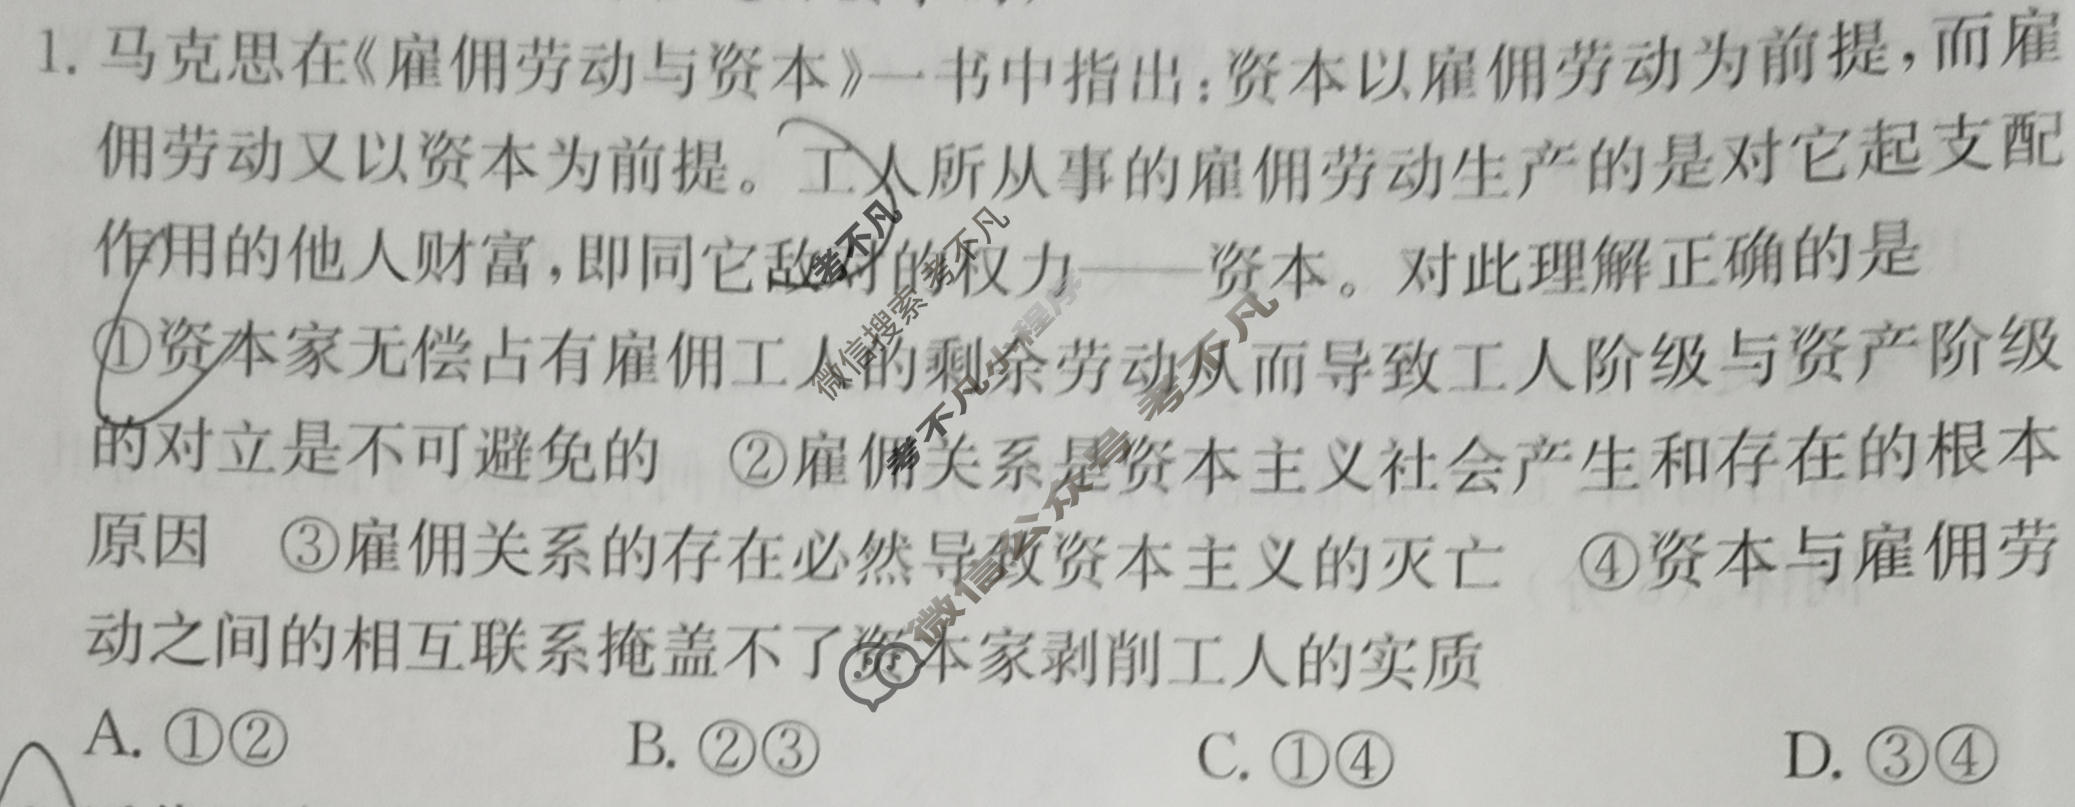 1. 马克思在《雇佣劳动与资本》一书中指出:资本以雇佣劳动为前提,而雇
佣劳动又以资本为前提。工人所从事的雇佣劳动生产的是对它起支配
作用的他人财富,即同它敌对的权力——资本。对此理解正确的是
①资本家无偿占有雇佣工人的剩余劳动从而导致工人阶级与资产阶级
的对立是不可避免的 ②雇佣关系是资本主义社会产生和存在的根本
原因 ③雇佣关系的存在必然导致资本主义的灭亡 ④资本与雇佣劳
动之间的相互联系掩盖不了资本家剥削工人的实质
A. ①② B. ②③ C. ①④ D. ③④
考不凡
微信搜索 考不凡
考不凡小程序
微信公众号 考不凡